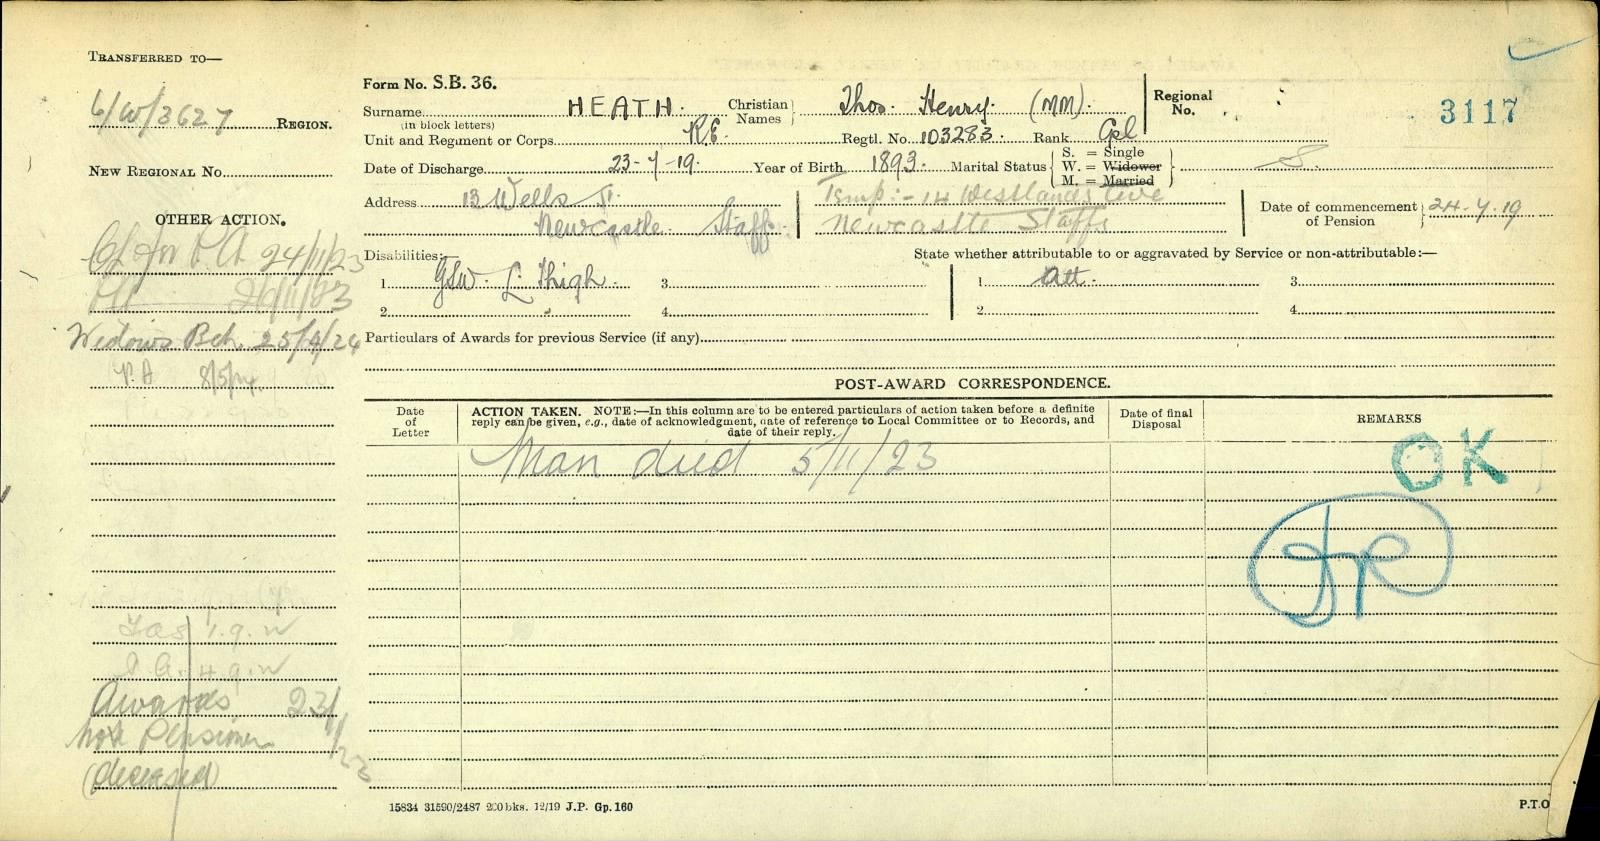 TRANSFERRED TO—
6/W/3627 REGION.
NEW REGIONAL No.
OTHER ACTION.
24/11/23
26/11/23
Widows Bch. 25/4/24
P.A 8/5/24
1.9.
P.A. 4.9.
Awards 23/11/23
Pensioner
(deceased)
Form No. S.B. 36.
Surname HEATH. Christian Names Thos. Henry. (MM). Regional No. 3117
(in block letters)
Unit and Regiment or Corps R.E. Regtl. No. 103283. Rank Cpl
Date of Discharge 23-7-19. Year of Birth 1893. Marital Status S. = Single W. = Widower M. = Married S.
Address 13 Wells St. Newcastle. Staffs. Temp:- 14 Westlands Ave Newcastle Staffs Date of commencement of Pension 24.7.19
Disabilities: State whether attributable to or aggravated by Service or non-attributable:—
1 GSW. L. Thigh. 3 1 Att. 3
2 4 2 4
Particulars of Awards for previous Service (if any)
POST-AWARD CORRESPONDENCE.
Date of Letter
ACTION TAKEN. NOTE:—In this column are to be entered particulars of action taken before a definite
reply can be given, e.g., date of acknowledgment, date of reference to Local Committee or to Records, and
date of their reply.
Date of final Disposal
REMARKS
Man died 5/11/23
OK
15834 31590/2487 200bks. 12/19 J.P. Gp.160
P.T.O